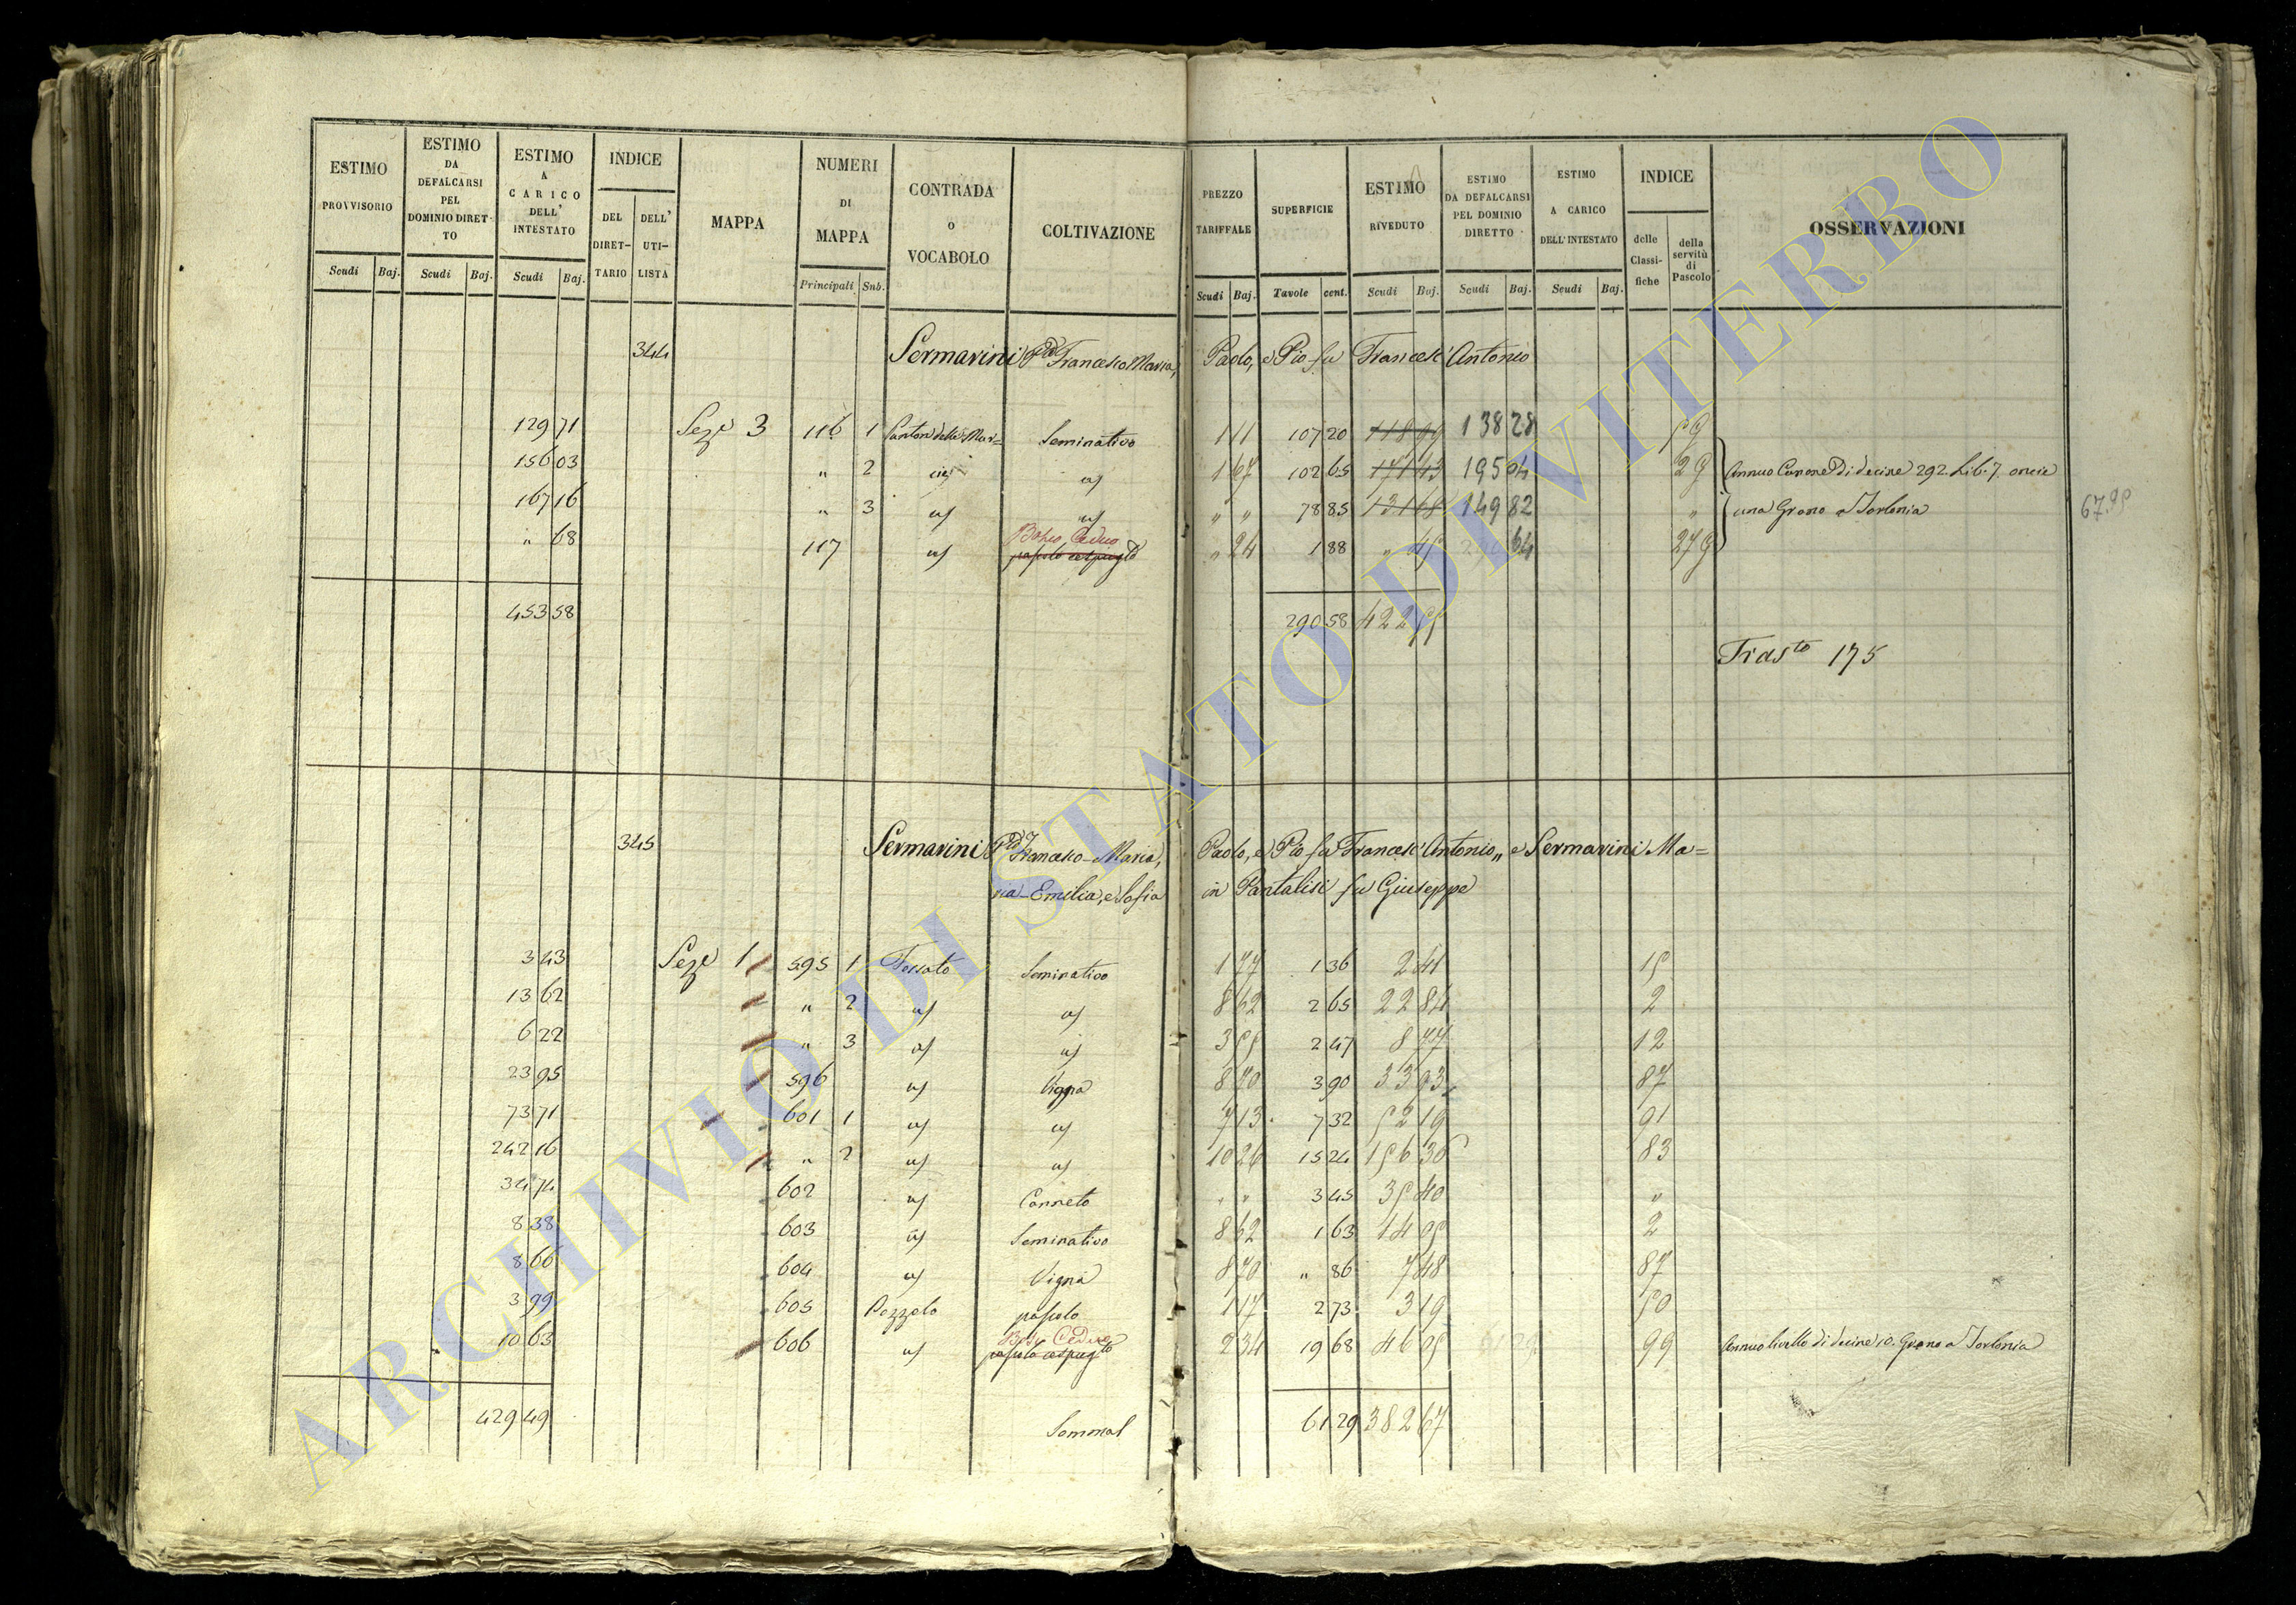 ESTIMO PROVVISORIO Scudi Baj.
ESTIMO DA DEFALCARSI PEL DOMINIO DIRET- TO Scudi Baj.
ESTIMO A CARICO DELL' INTESTATO Scudi Baj.
INDICE DEL DIRET- TARIO DELL' UTI- LISTA
MAPPA
NUMERI DI MAPPA Principali Sub.
CONTRADA o VOCABOLO
COLTIVAZIONE
PREZZO TARIFFALE Scudi Baj.
SUPERFICIE Tavole cent.
ESTIMO RIVEDUTO Scudi Baj.
ESTIMO DA DEFALCARSI PEL DOMINIO DIRETTO Scudi Baj.
ESTIMO A CARICO DELL' INTESTATO Scudi Baj.
INDICE delle Classi- fiche della servitù di Pascolo
OSSERVAZIONI
344 Sermarini Francesco Maria, Paolo, e Pio fu Francesc' Antonio
129 71 Sezе 3 116 1 Seminativo 1 11 107 20 118 99 138 28 5 9
156 03 " 2 1 67 102 65 171 43 195 04 2 9 Annuo Canone di decine 292. Lib. 7. oncie
167 16 " 3 " " 78 85 131 68 149 82 " una Grano a Torlonia 67.95
" 68 117 Bosco Ceduo " 24 1 88 " 45 64 27 9
453 58 290 58 422 55
Trasto 175
345 Sermarini Francesco-Maria, Paolo, e Pio fu Francesc' Antonio,, e Sermarini Ma=
ria-Emilia, e Sofia in Pantalisi fu Giuseppe
3 43 Sezе 1 595 1 Fossato Seminativo 1 77 1 36 2 41 15
13 62 " 2 8 62 2 65 22 84 2
6 22 " 3 3 55 2 47 8 77 12
23 95 596 Vigna 8 70 3 90 33 93 87
73 71 601 1 7 13 7 32 52 19 91
242 16 " 2 10 26 15 24 156 36 83
34 74 602 Canneto " " 3 45 35 40 "
8 38 603 Seminativo 8 62 1 63 14 05 2
8 66 604 Vigna 8 70 " 86 7 48 87
3 99 605 Pozzolo pascolo 1 17 2 73 3 19 50
10 63 606 Bosco Ceduo 2 34 19 68 46 05 99 Annuo livello di decine 10. Grano a Torlonia
429 49 61 29 382 67
ARCHIVIO DI STATO DI VITERBO